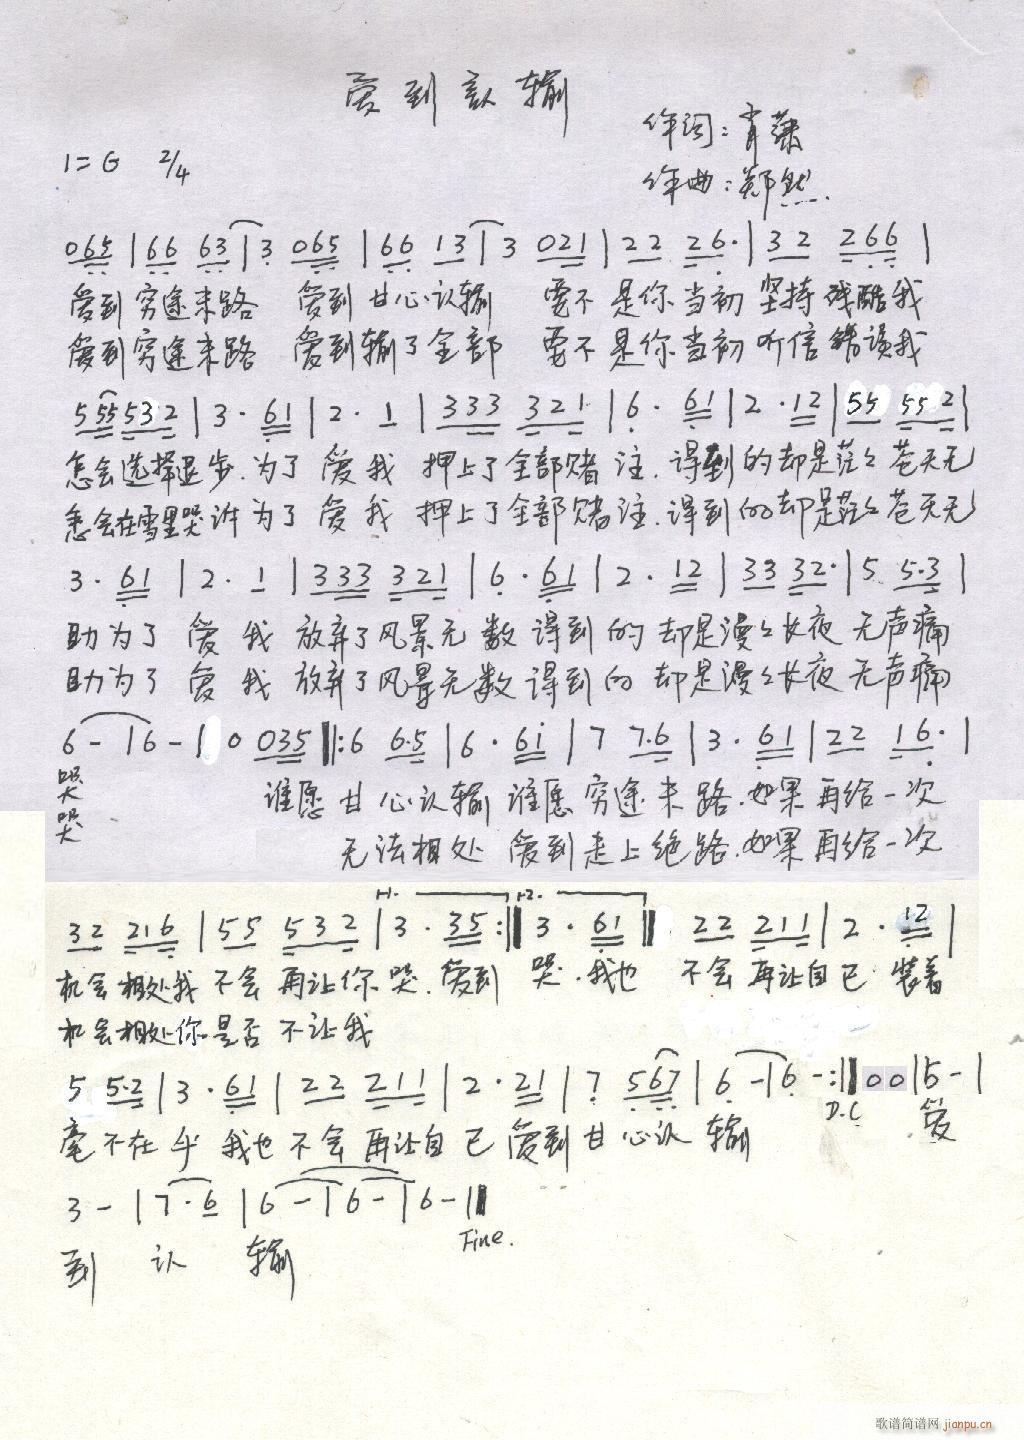 爱到认输
作词：肖
1=G 2/4
作曲：郑然
065 | 66 63 | 3 065 | 66 13 | 3 021 | 22 26· | 32 266 |
爱到穷途末路 爱到甘心认输 要不是你当初坚持残酷我
爱到穷途末路 爱到输了全部 要不是你当初听信错误我
5 55532 | 3· 61 | 2· 1 | 333 321 | 6· 61 | 2· 12 | 55 552 |
怎会选择退步.为了爱我押上了全部赌注.得到的却是茫々苍天无
怎会在雪里哭诉为了爱我押上了全部赌注.得到的却是茫々苍天无
3· 61 | 2· 1 | 333 321 | 6· 61 | 2· 12 | 33 32· | 5 5·3 |
助为了爱我放弃了风景无数得到的却是漫々长夜无声痛
助为了爱我放弃了风景无数得到的却是漫々长夜无声痛
6 - | 6 - | 0 035 ‖: 6 6·5 | 6· 6i | 7 7·6 | 3· 61 | 22 16· |
哭 谁愿甘心认输谁愿穷途末路.如果再给一次
哭 无法相处爱到走上绝路.如果再给一次
1. 2.
32 216 | 55 532 | 3· 35 :‖ 3· 61 ‖ 22 211 | 2· 12 |
机会相处我不会再让你哭.爱到哭.我也不会再让自己装着
机会相处你是否不让我
5 5·2 | 3· 61 | 22 211 | 2· 21 | 7 567 | 6 - | 6 - :‖ 00 | 5 - |
D.C
毫不在乎我也不会再让自己爱到甘心认输 爱
3 - | 7· 6 | 6 - | 6 - | 6 - ‖
Fine.
到认输
歌谱简谱网 jianpu.cn